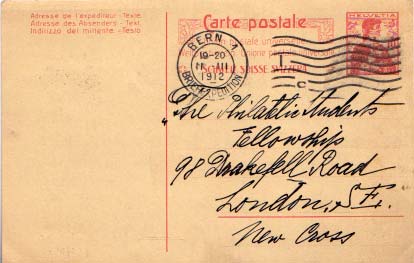 Adresse de l'expéditeur - Texte
Adresse des Absenders - Text
Indirizzo del mittente - Testo
Carte postale
HELVETIA
postale universelle
SUISSE SVIZZERA
BERN 1
19-20
III
1912
BRIEFEXPEDITION
The Philatelic Students
Fellowship
98 Drakefell Road
London, S.E.
New Cross